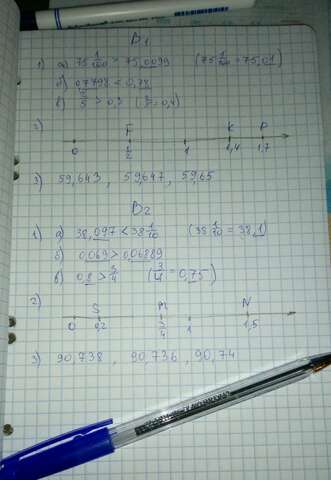 В1
1) а) 75 1/100 > 75,0099 (75 1/100 = 75,01)
б) 0,7798 < 0,78
в) 2/5 > 0,3 (2/5 = 0,4)
2) F K P
0 1/2 1 1,4 1,7
3) 59,643 , 59,647 , 59,65
В2
1) а) 38,097 < 38 1/10 (38 1/10 = 38,1)
б) 0,069 > 0,06889
в) 0,8 > 3/4 (3/4 = 0,75)
2) S M N
0 0,2 3/4 1 1,5
3) 90,738 , 90,736 , 90,74